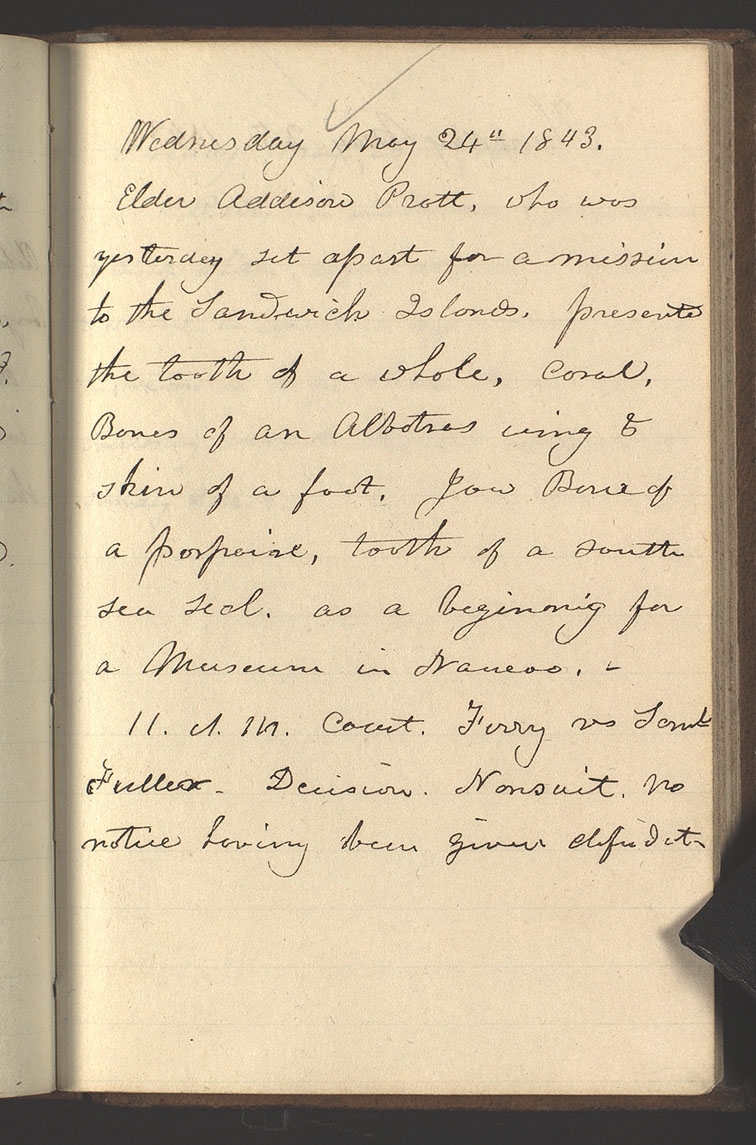 Wednesday May 24th 1843.
Elder Addison Pratt, who was
yesterday set apart for a mission
to the Sandwich Islands. presented
the tooth of a whale, coral,
Bones of an Albatros wing &
skin of a foot, Jaw Bone of
a porpoise, tooth of a south
sea seal. as a beginning for
a Museum in Nauvoo. -
11. A. M. Court. Ferry vs Saml
Fuller - Decision. Nonsuit. no
notice having been given defendt-